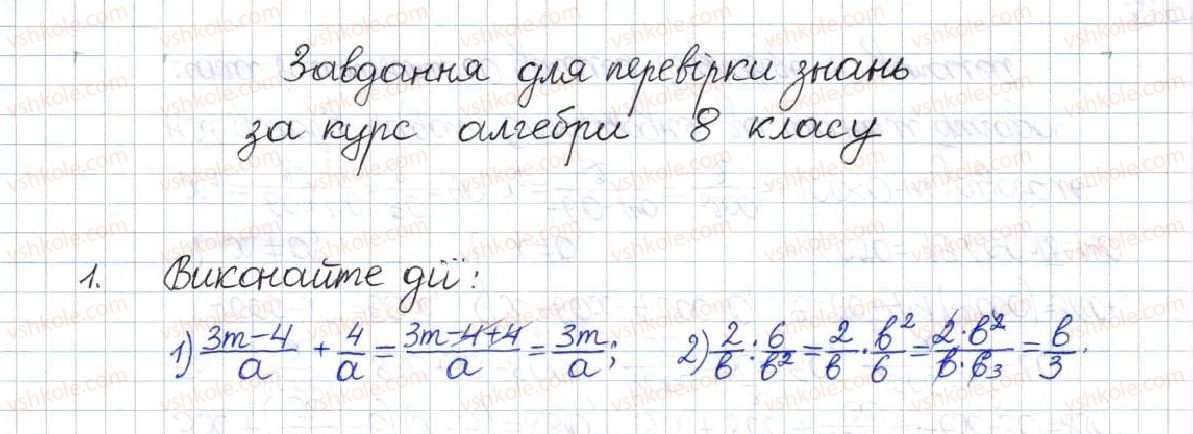 Завдання для перевірки знань
за курс алгебри 8 класу
1. Виконайте дії:
1) (3m-4)/a + 4/a = (3m-4+4)/a = 3m/a; 2) 2/в : 6/в² = 2/в · в²/6 = (2·в²)/(в·6 3) = в/3.